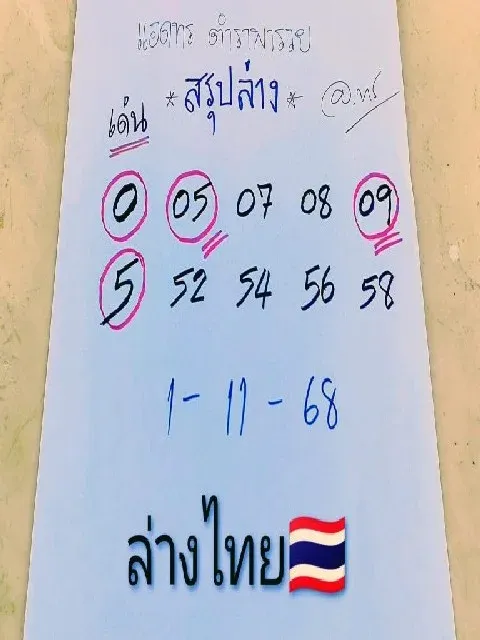 แอดทร ตำราพารวย
*สรุปล่าง*
เด่น
0 05 07 08 09
5 52 54 56 58
1-11-68
ล่างไทย🇹🇭